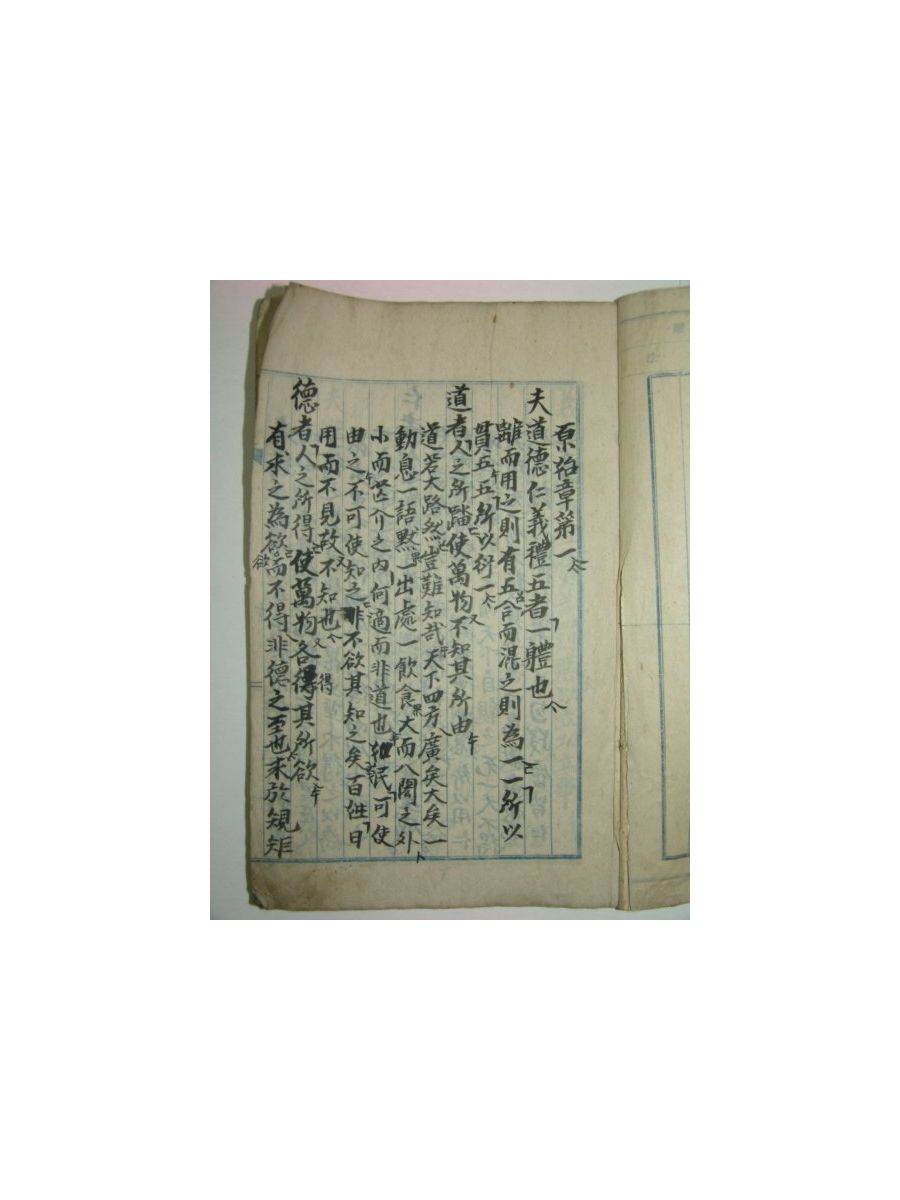 原始章第一
夫道德仁義禮五者一體也
離而用之則有五合而混之則為一一所以
貫五五所以衍一
道者人之所蹈使萬物不知其所由
道若大路然豈難知哉天下四方廣矣大矣一
動息一語默一出處一飲食大而八閎之外
小而芒介之內何適而非道也 民可使
由之不可使知之非不欲其知之矣百姓日
用而不見故不知也
德者人之所得使萬物各得其所欲
有求之為欲而不得非德之至也求於規矩